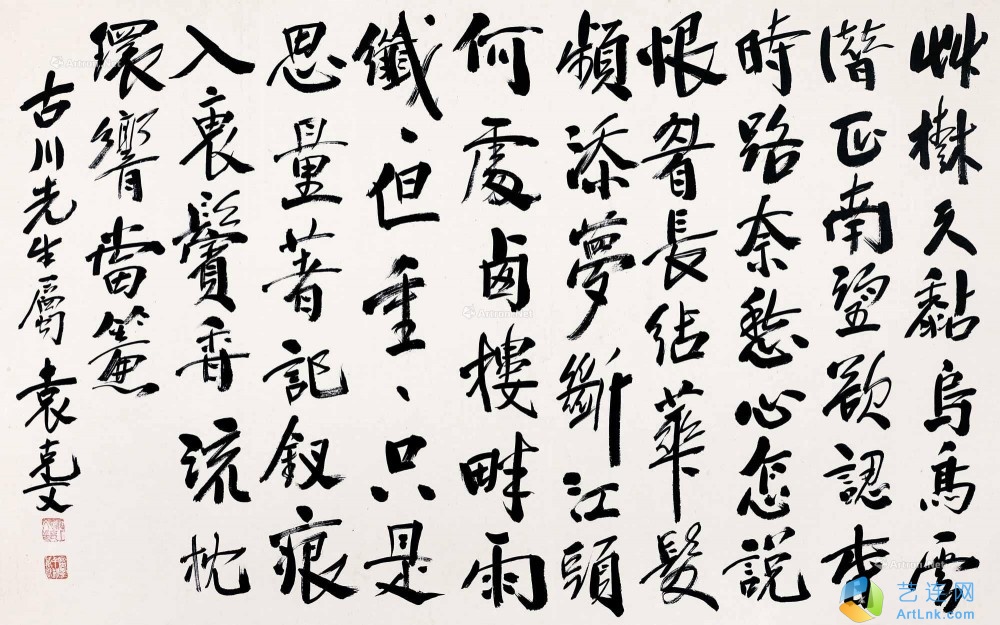 艸樹天黏烏雲
正南望欲認昔
時路奈愁心怎說
恨眉長華髮
頻添夢斷江頭
何處卥樓畔雨
纖、但重、只是
思量著記釵痕
入裏鬢香流枕
環響當簾
古川先生屬 袁克文
艺连网
ArtLnk.com